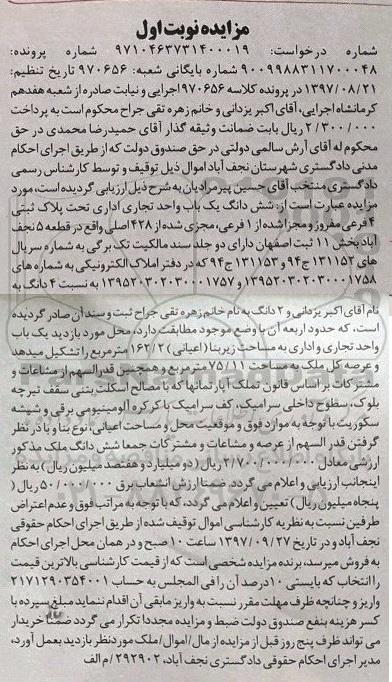 مزایده نوبت اول
شماره درخواست: ۹۷۱۰۴۶۳۷۳۱۴۰۰۰۱۹ شماره پرونده:
۹۰۰۹۹۸۸۳۱۱۷۰۰۰۴۸ شماره بایگانی شعبه: ۹۷۰۶۵۶ تاریخ تنظیم:
۱۳۹۷/۰۸/۲۱ در پرونده کلاسه ۹۷۰۶۵۶ اجرایی و نیابت صادره از شعبه هفدهم
کرمانشاه اجرایی، آقای اکبر یزدانی و خانم زهره تقی جراح محکوم است به پرداخت
۲/۳۰۰/۰۰۰ ریال بابت ضمانت وثیقه گذار آقای حمیدرضا محمدی در حق
محکوم له آقای آرش سالمی دولتی در حق صندوق دولت که از طریق اجرای احکام
مدنی دادگستری شهرستان نجف آباد اموال ذیل توقیف و توسط کارشناس رسمی
دادگستری منتخب آقای حسین پیرمرادیان به شرح ذیل ارزیابی گردیده است، مورد
مزایده عبارت است از: شش دانگ یک باب واحد تجاری اداری تحت پلاک ثبتی
۴ فرعی مفروز و مجزا شده از ۱ فرعی، مجزی شده از ۴۲۸ اصلی واقع در قطعه ۵ نجف
آباد بخش ۱۱ ثبت اصفهان دارای دو جلد سند مالکیت تک برگی به شماره سریال
های ۱۳۱۱۵۲ ج ۹۴ و ۱۳۱۱۵۳ ج ۹۴ که در دفتر املاک الکترونیکی به شماره های
۱۳۹۵۲۰۳۰۲۰۳۰۰۰۱۷۵۸ و ۱۳۹۵۲۰۳۰۲۰۳۰۰۰۱۷۵۷ به نسبت ۴ دانگ به
نام آقای اکبر یزدانی و ۲ دانگ به نام خانم زهره تقی جراح ثبت و سند آن صادر گردیده
است، که حدود اربعه آن با وضع موجود مطابقت دارد، محل مورد بازدید یک باب
واحد تجاری و اداری به مساحت زیربنا (اعیانی) ۱۶۲/۲ مترمربع را تشکیل میدهد
و عرصه کل ملک به مساحت ۷۵/۱۱ مترمربع و همچنین قدرالسهم از مشاعات و
مشترکات بر اساس قانون تملک آپارتمانها که با مصالح اسکلت بتنی سقف تیرچه
بلوک، سطوح داخلی سرامیک، کف سرامیک با کرکره آلومینیومی برقی و شیشه
سکوریت با توجه به موارد فوق و موقعیت محل و مساحت اعیانی، نوع بنا و با در نظر
گرفتن قدر السهم از عرصه و مشاعات و مشترکات جمعا شش دانگ ملک مذکور
ارزشی معادل ۲/۷۰۰/۰۰۰/۰۰۰ ریال (دو میلیارد و هفتصد میلیون ریال) به نظر
اینجانب ارزیابی و اعلام می گردد. ضمنا ارزش انشعاب برق ۵۰/۰۰۰/۰۰۰ ریال
(پنجاه میلیون ریال) تعیین و اعلام می گردد، که با توجه به مراتب فوق و عدم اعتراض
طرفین نسبت به نظریه کارشناسی اموال توقیف شده از طریق اجرای احکام حقوقی
نجف آباد و در تاریخ ۱۳۹۷/۰۹/۲۷ ساعت ۱۰ صبح و در همان محل اجرای احکام
به فروش میرسد، برنده مزایده شخصی است که از قیمت کارشناسی بالاترین قیمت
را انتخاب که بایستی ۱۰ درصد آن را فی المجلس به حساب ۲۱۷۱۲۹۰۳۵۴۰۰۱
واریز و چنانچه ظرف مهلت مقرر نسبت به واریز مابقی آن اقدام ننماید مبلغ سپرده با
کسر هزینه بنفع صندوق دولت ضبط و مزایده مجددا تکرار می گردد ضمنا خریدار
می تواند ظرف پنج روز قبل از مزایده از مال/اموال/ملک موردنظر بازدید بعمل آورد،
مدیر اجرای احکام حقوقی دادگستری نجف آباد، ۲۹۲۹۰۲/م الف